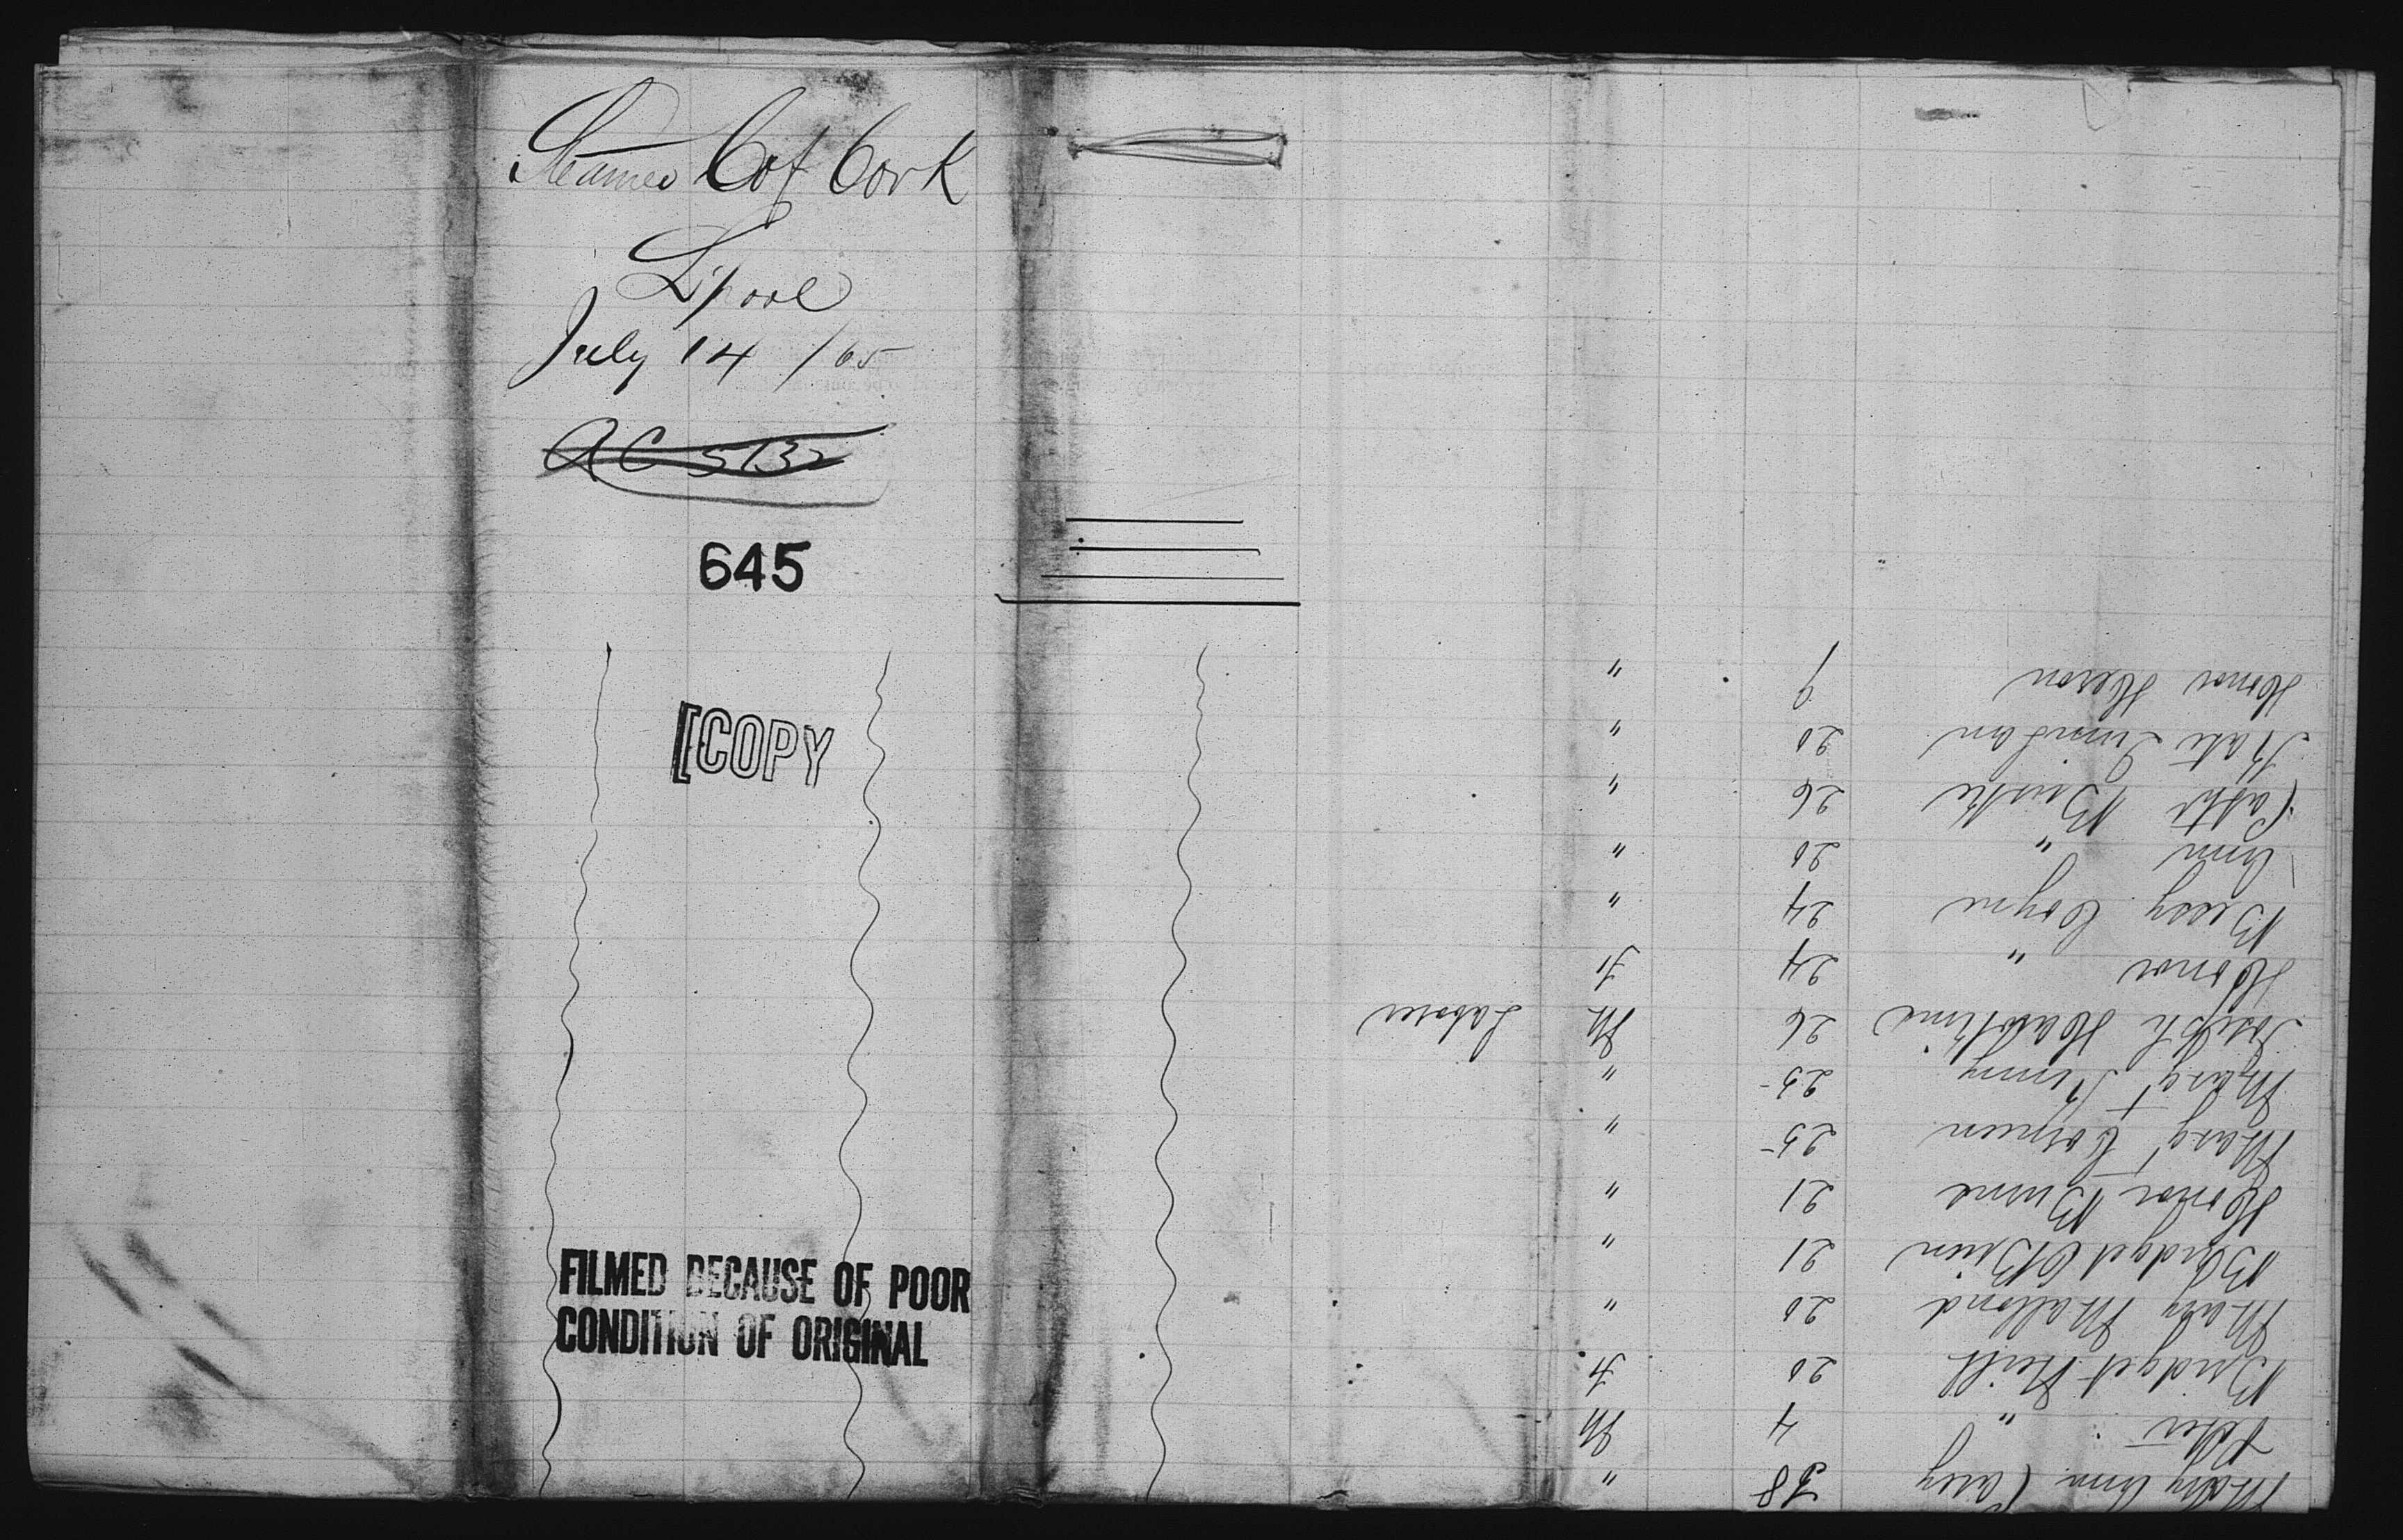 Steamer C of Cork
L'pool
July 14 /65
AC 5132
645
[COPY
FILMED BECAUSE OF POOR
CONDITION OF ORIGINAL
Mary Ann Casey 38 "
Peter " 4 M
Bridget Neill 20 F
Mary Malloná 20 "
Bridget OBrien 21 "
Honor Burne 21 "
Margt 25 "
Margt Kenny 25 "
Joseph 26 M Laborer
Honor " 24 F
Bessy Coyne 24 "
Ann " 20 "
Cathe Burke 26 "
Kate 20 "
Honor Heron 9 "